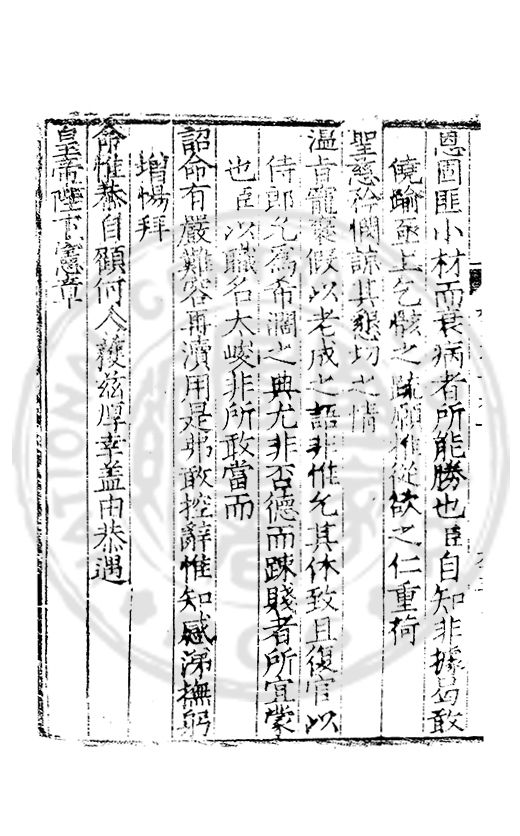 恩固匪小材而衰病者所能勝也臣自知非據曷敢
僥踰亟上乞骸之疏願推從欲之仁重荷
聖慈矜憫諒其懇切之情
溫旨寵褒假以老成之語非惟允其休致且復官以
侍郎允爲希濶之典尤非否德而疎賤者所宜蒙
也臣以職名太峻非所敢當而
詔命有嚴難容再瀆用是弗敢控辭惟知感涕撫躬
增惕拜
命惟恭自顧何人獲玆厚幸盖由恭遇
皇帝陛下憲章